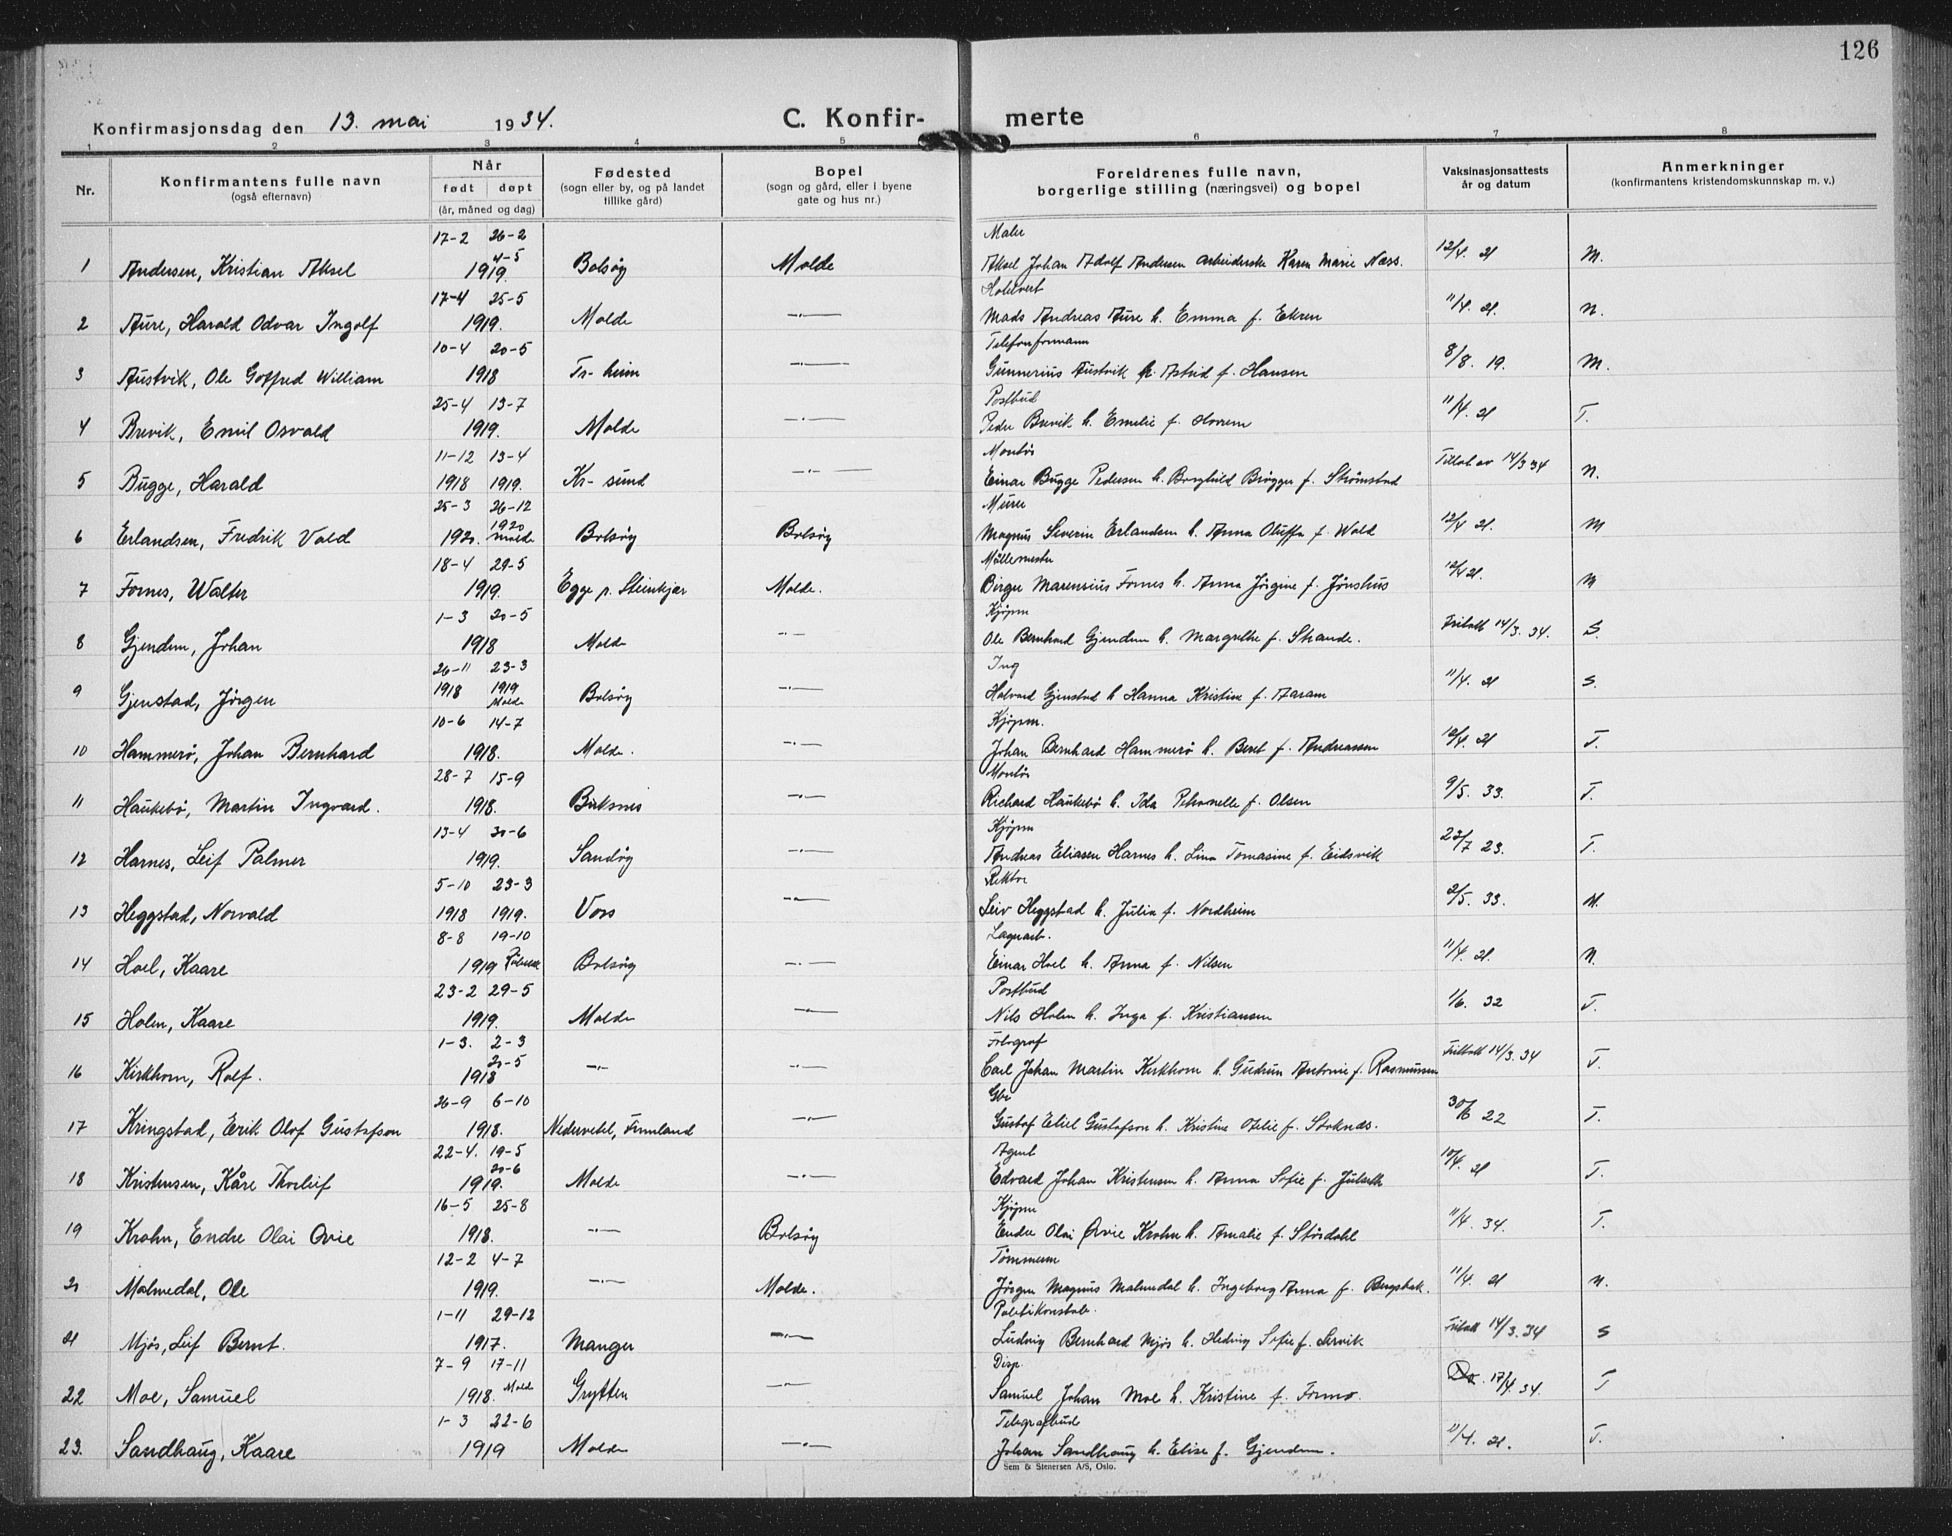 126
Konfirmasjonsdag den 13. mai 1934. C. Konfir- merte
1 2 3 4 5 6 7 8
Nr. Konfirmantens fulle navn (også efternavn) Når født døpt (år, måned og dag) Fødested (sogn eller by, og på landet tillike gård) Bopel (sogn og gård, eller i byene gate og hus nr.) Foreldrenes fulle navn, borgerlige stilling (næringsvei) og bopel Vaksinasjonsattests år og datum Anmerkninger (konfirmantens kristendomskunnskap m. v.)
17-2 26-2 4-5 Maler
1 Andersen, Kristian Aksel 1919. Bolsøy Molde Aksel Johan Adolf Andersen arbeiderske Karen Marie Næss. 12/4. 21 M.
17-4 25-5 Hotelvert
2 Aure, Harald Odvar Ingolf 1919. Molde -·- Mads Andreas Aure h. Emma f. Ekren 11/4. 21. N.
10-4 20-5 Telefonformann
3 Austvik, Ole Gotfred William 1918 Tr-heim -·- Gunnerius Austvik h. Astrid f. Hansen 8/8. 19. M.
25-4 13-7 Postbud
4 Brevik, Emil Osvald 1919. Molde -·- Peder Brevik h. Emelie f. Horrem 11/4. 21 T.
11-12 13-4 Montør
5 Bugge, Harald 1918 1919. Kr-sund -·- Einar Bugge Pedersen h. Borghild Brøgger f. Strømstad 14/3 34 N.
25-3 26-12 Murer
6 Erlandsen, Fredrik Vold 1920. 1920 Molde Bolsøy Bolsøy Magnus Severin Erlandsen h. Anna Oluffa f. Wold 12/4 21. M
18-4 29-5 Møllemester
7 Fornes, Walter 1919. Egge p. Steinkjær Molde. Birger Marensius Fornes h. Anna Jørgine f. Jønshus 12/4 21. M
1-3 20-5 Kjøpm
8 Gjendem, Johan 1918 Molde -·- Ole Bernhard Gjendem h. Margrethe f. Strande. Fritatt 14/3. 34. S.
26-11 23-3 Ing
9 Gjenstad, Jørgen 1918 1919 Molde Bolsøy -·- Halvard Gjenstad h Hanna Kristine f. Aaram 11/4. 21 S.
10-6 14-7 Kjøpm.
10 Hammerø, Johan Bernhard 1918. Molde. -·- Johan Bernhard Hammerø h. Beret f. Andreassen 12/4. 21 T.
28-7 15-9 Montør
11 Haukebø, Martin Ingvard. 1918. Buksnes -·- Richard Haukebø h. Ida Petronelle f. Olsen 9/5. 33. T.
13-4 20-6 Kjøpm
12 Harnes, Leif Palmer 1919. Sandøy -·- Andreas Eliasen Harnes h. Lina Tomasine f. Eidsvik 23/7 23. T.
5-10 23-3 Rektor
13 Heggstad, Norvald 1918 1919. Voss -·- Leiv Heggstad h. Julia f. Nordheim 2/5. 33. M.
8-8 19-10 Lagerarb.
14 Hoel, Kaare 1919 Bolsøy -·- Einar Hoel h. Anna f. Nilsen 11/4. 21. N.
23-2 29-5 Postbud
15 Holm, Kaare 1919. Molde -·- Nils Holm h. Inga f. Kristiansen 1/6. 32 T.
1-3. 2-3 20-5 Fotograf
16 Kirkhorn, Rolf. 1918 -·- -·- Carl Johan Martin Kirkhorn h. Gudrun Antonie f. Rasmussen Fritatt 14/3. 34 T.
26-9 6-10 Gbr
17 Kringstad, Erik Olof Gustafson 1918. Nedervetel, Finnland -·- Gustaf Eliel Gustafson h. Kristine Otelie f. Stoknes. 30/6 22 T.
22-4. 19-5 20-6 Agent
18 Kristensen, Kåre Thorleif 1919. Molde -·- Edvard Johan Kristensen h. Anna Sofie f. Julseth 10/4. 21 T.
16-5 25-8 Kjøpm
19 Krohn, Endre Olai Ovie 1918. -·- Bolsøy Endre Olai Øvie Krohn h. Amalie f. Størdahl 11/4. 34. T.
12-2 4-7 Tømmerm
20 Malmedal, Ole 1919. -·- Molde. Jørgen Magnus Malmedal h. Ingeborg Anna f. Bergsbak. 11/4. 21 N.
1-11 29-12 Politikonstabe.
21 Mjøs, Leif Bernt. 1917. Manger -·- Ludvig Bernhard Mjøs h. Hedvig Sofie f. Lervik Fritatt 14/3. 34 S
7-9 17-11 Disp.
22 Moe, Samuel 1918. Molde Grytten -·- Samuel Johan Moe h. Kristine f. Formo. Do. 17/4. 34. T
1-3 22-6 Telegrafbude
23. Sandhaug, Kaare 1919 Molde -·- Johan Sandhaug h. Elise f. Gjendem. 11/4. 21. T.
Sem & Stenersen A/S, Oslo.